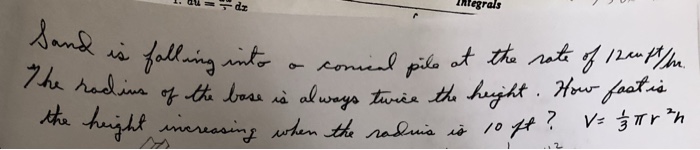 1. du = dx
Integrals
Sand is falling into a conical pile at the rate of 12 cu ft/m.
The radius of the base is always twice the height. How fast is
the height increasing when the radius is 10 ft? V = 1/3 π r²h